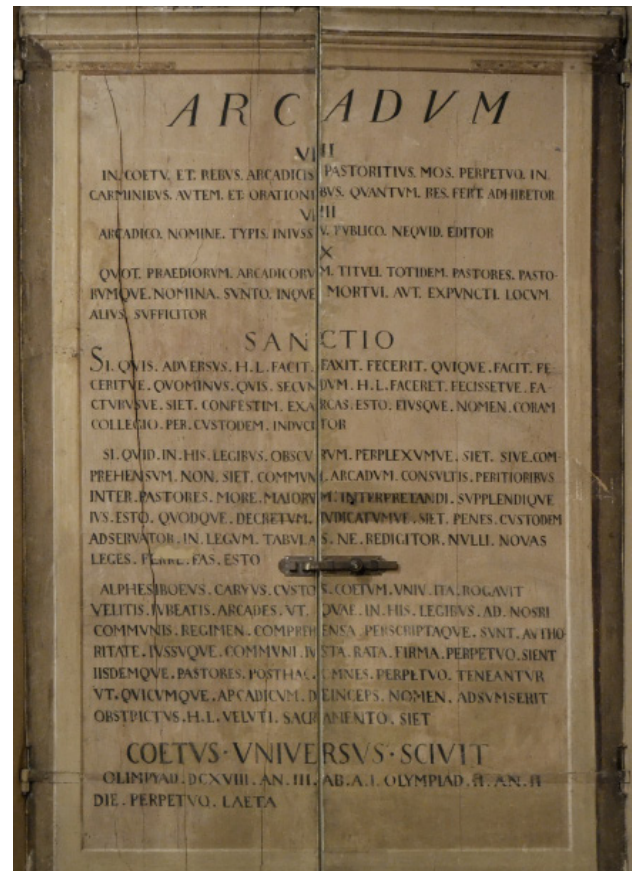 ARCADVM
VIII
IN. COETV. ET. REBVS. ARCADICIS. PASTORITIVS. MOS. PERPETVO. IN.
CARMINIBVS. AVTEM. ET. ORATIONIBVS. QVANTVM. RES. FERT. ADHIBETOR
VIIII
ARCADICO. NOMINE. TYPIS. INIVSSV. PVBLICO. NEQVID. EDITOR
X
QVOT. PRAEDIORVM. ARCADICORVM. TITVLI. TOTIDEM. PASTORES. PASTO-
RVMQVE. NOMINA. SVNTO. INQVE MORTVI. AVT. EXPVNCTI. LOCVM
ALIVS. SVFFICITOR
SANCTIO
SI. QVIS. ADVERSVS. H. L. FACIT. FAXIT. FECERIT. QVIQVE. FACIT. FE
CERITVE. QVOMINVS. QVIS. SECVNDVM. H. L. FACERET. FECISSETVE. FA-
CTVRVSVE. SIET. CONFESTIM. EXARCAS. ESTO. EIVSQVE. NOMEN. CORAM
COLLEGIO. PER. CVSTODEM. INDVCITOR
SI. QVID. IN. HIS. LEGIBVS. OBSCVRVM. PERPLEXVMVE. SIET. SIVE. COM-
PREHENSVM. NON. SIET. COMMVNI. ARCADVM. CONSVLTIS. PERITIORIBVS
INTER. PASTORES. MORE. MAIORVM. INTERPRETANDI. SVPPLENDIQVE
IVS. ESTO. QVODQVE. DECRETVM. IVDICATVMVE. SIET. PENES. CVSTODEM
ADSERVATOR. IN. LEGVM. TABVLAS. NE. REDIGITOR. NVLLI. NOVAS
LEGES. FERRE. FAS. ESTO
ALPHESIBOEVS. CARYVS. CVSTOS. COETVM. VNIV. ITA. ROGAVIT
VELITIS. IVBEATIS. ARCADES. VT. QVAE. IN. HIS. LEGIBVS. AD. NOSRI
COMMVNIS. REGIMEN. COMPREHENSA. PERSCRIPTAQVE. SVNT. AVTHO
RITATE. IVSSVQVE. COMMVNI. IVSTA. RATA. FIRMA. PERPETVO. SIENT
IISDEMQVE. PASTORES. POSTHAC. OMNES. PERPETVO. TENEANTVR
VT. QVICVMQVE. ARCADICVM. DEINCEPS. NOMEN. ADSVMSERIT
OBSTRICTVS. H. L. VELVTI. SACRAMENTO. SIET
COETVS · VNIVERSVS · SCIVIT
OLIMPYAD. DCXVIII. AN. III. AB. A. I. OLYMPIAD. II. AN. II
DIE. PERPETVO. LAETA